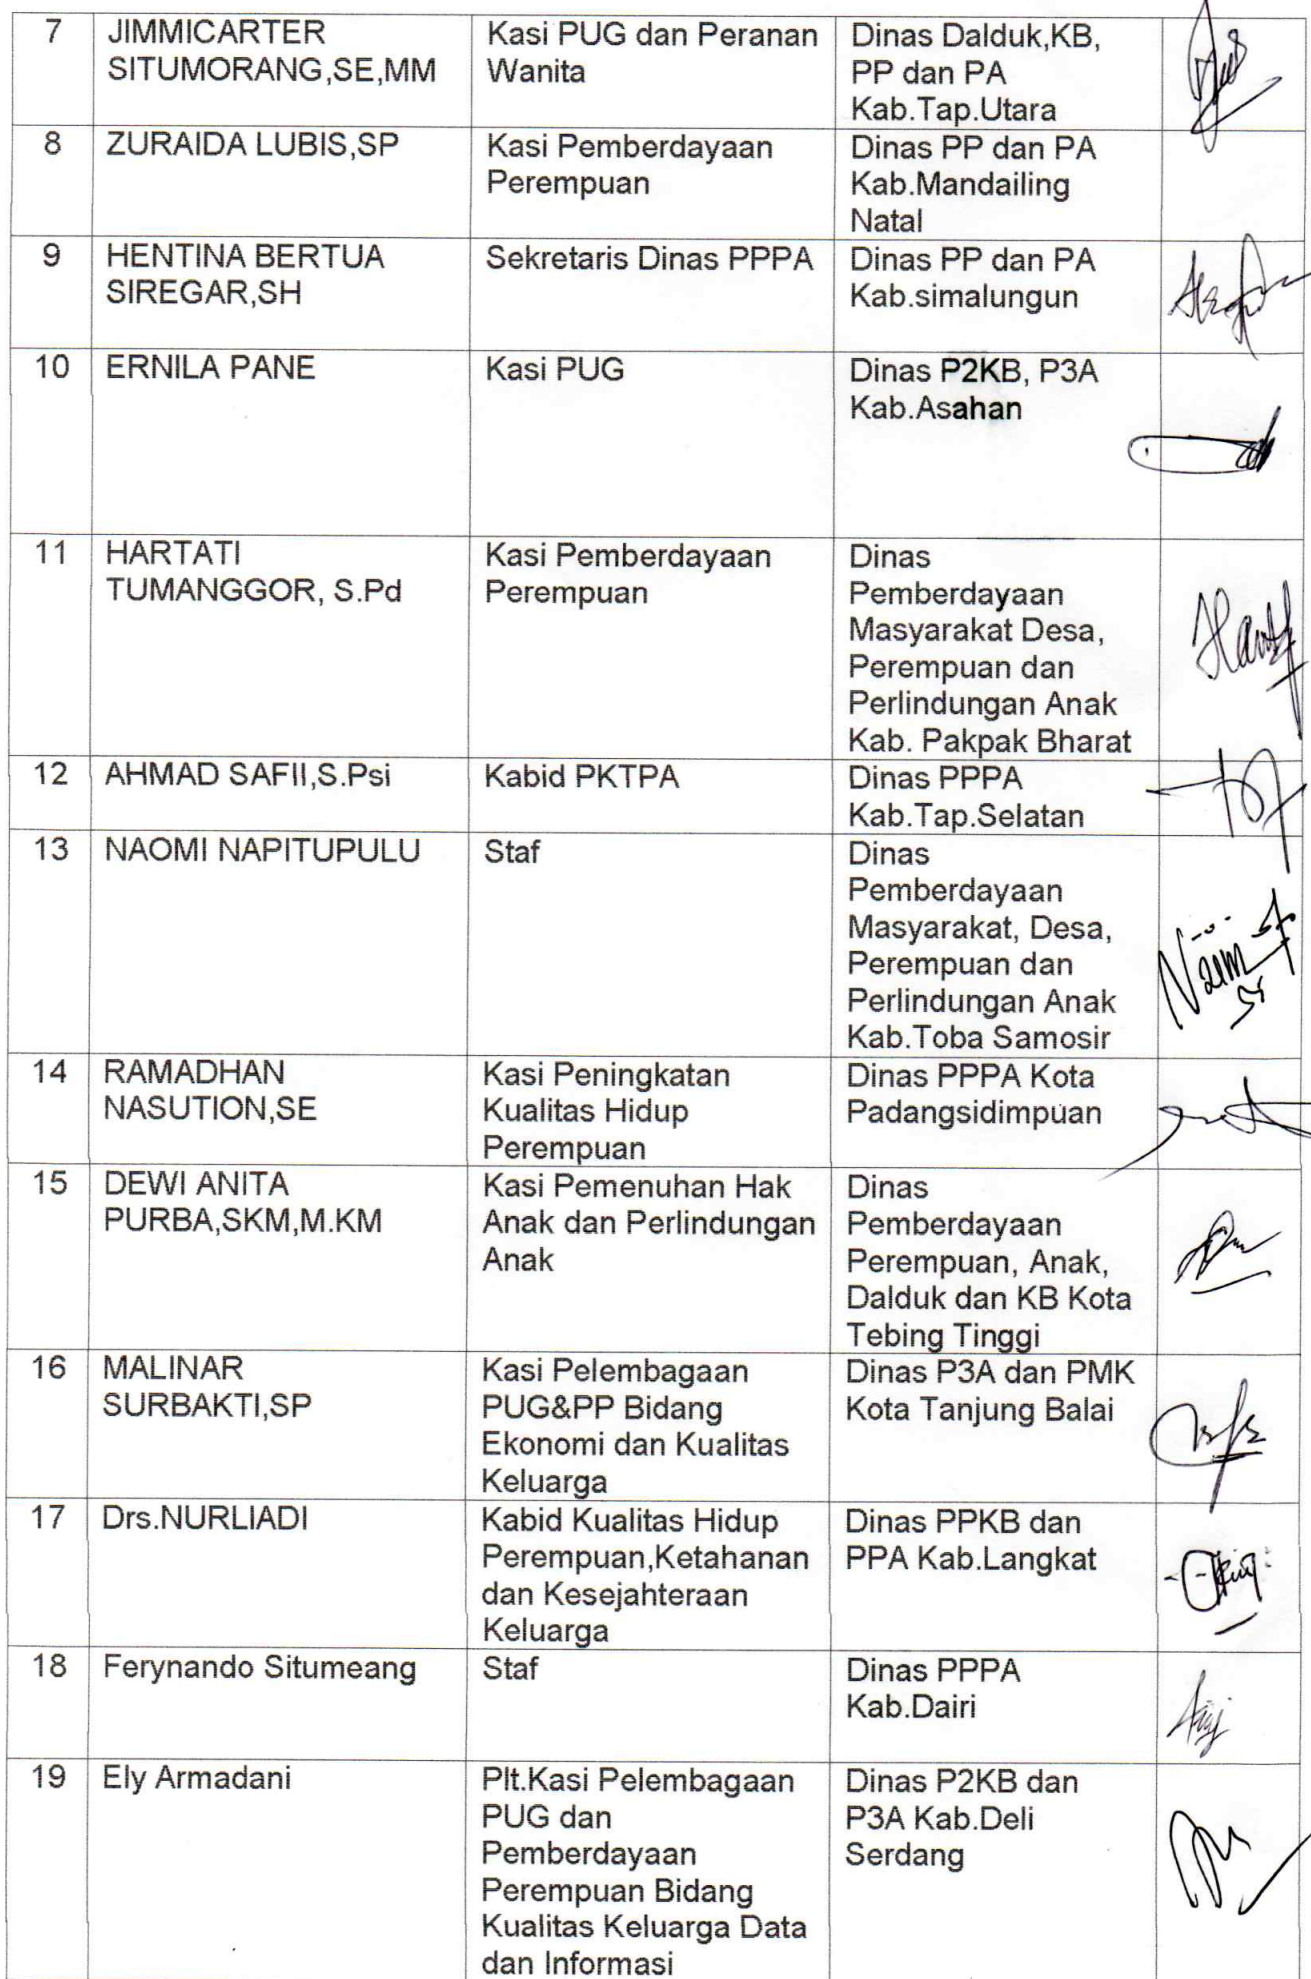 7
JIMMICARTER
SITUMORANG,SE,MM
Kasi PUG dan Peranan
Wanita
Dinas Dalduk,KB,
PP dan PA
Kab.Tap.Utara
8
ZURAIDA LUBIS,SP
Kasi Pemberdayaan
Perempuan
Dinas PP dan PA
Kab.Mandailing
Natal
9
HENTINA BERTUA
SIREGAR,SH
Sekretaris Dinas PPPA
Dinas PP dan PA
Kab.simalungun
10
ERNILA PANE
Kasi PUG
Dinas P2KB, P3A
Kab.Asahan
11
HARTATI
TUMANGGOR, S.Pd
Kasi Pemberdayaan
Perempuan
Dinas
Pemberdayaan
Masyarakat Desa,
Perempuan dan
Perlindungan Anak
Kab. Pakpak Bharat
12
AHMAD SAFII,S.Psi
Kabid PKTPA
Dinas PPPA
Kab.Tap.Selatan
13
NAOMI NAPITUPULU
Staf
Dinas
Pemberdayaan
Masyarakat, Desa,
Perempuan dan
Perlindungan Anak
Kab.Toba Samosir
14
RAMADHAN
NASUTION,SE
Kasi Peningkatan
Kualitas Hidup
Perempuan
Dinas PPPA Kota
Padangsidimpuan
15
DEWI ANITA
PURBA,SKM,M.KM
Kasi Pemenuhan Hak
Anak dan Perlindungan
Anak
Dinas
Pemberdayaan
Perempuan, Anak,
Dalduk dan KB Kota
Tebing Tinggi
16
MALINAR
SURBAKTI,SP
Kasi Pelembagaan
PUG&PP Bidang
Ekonomi dan Kualitas
Keluarga
Dinas P3A dan PMK
Kota Tanjung Balai
17
Drs.NURLIADI
Kabid Kualitas Hidup
Perempuan,Ketahanan
dan Kesejahteraan
Keluarga
Dinas PPKB dan
PPA Kab.Langkat
18
Ferynando Situmeang
Staf
Dinas PPPA
Kab.Dairi
19
Ely Armadani
Plt.Kasi Pelembagaan
PUG dan
Pemberdayaan
Perempuan Bidang
Kualitas Keluarga Data
dan Informasi
Dinas P2KB dan
P3A Kab.Deli
Serdang